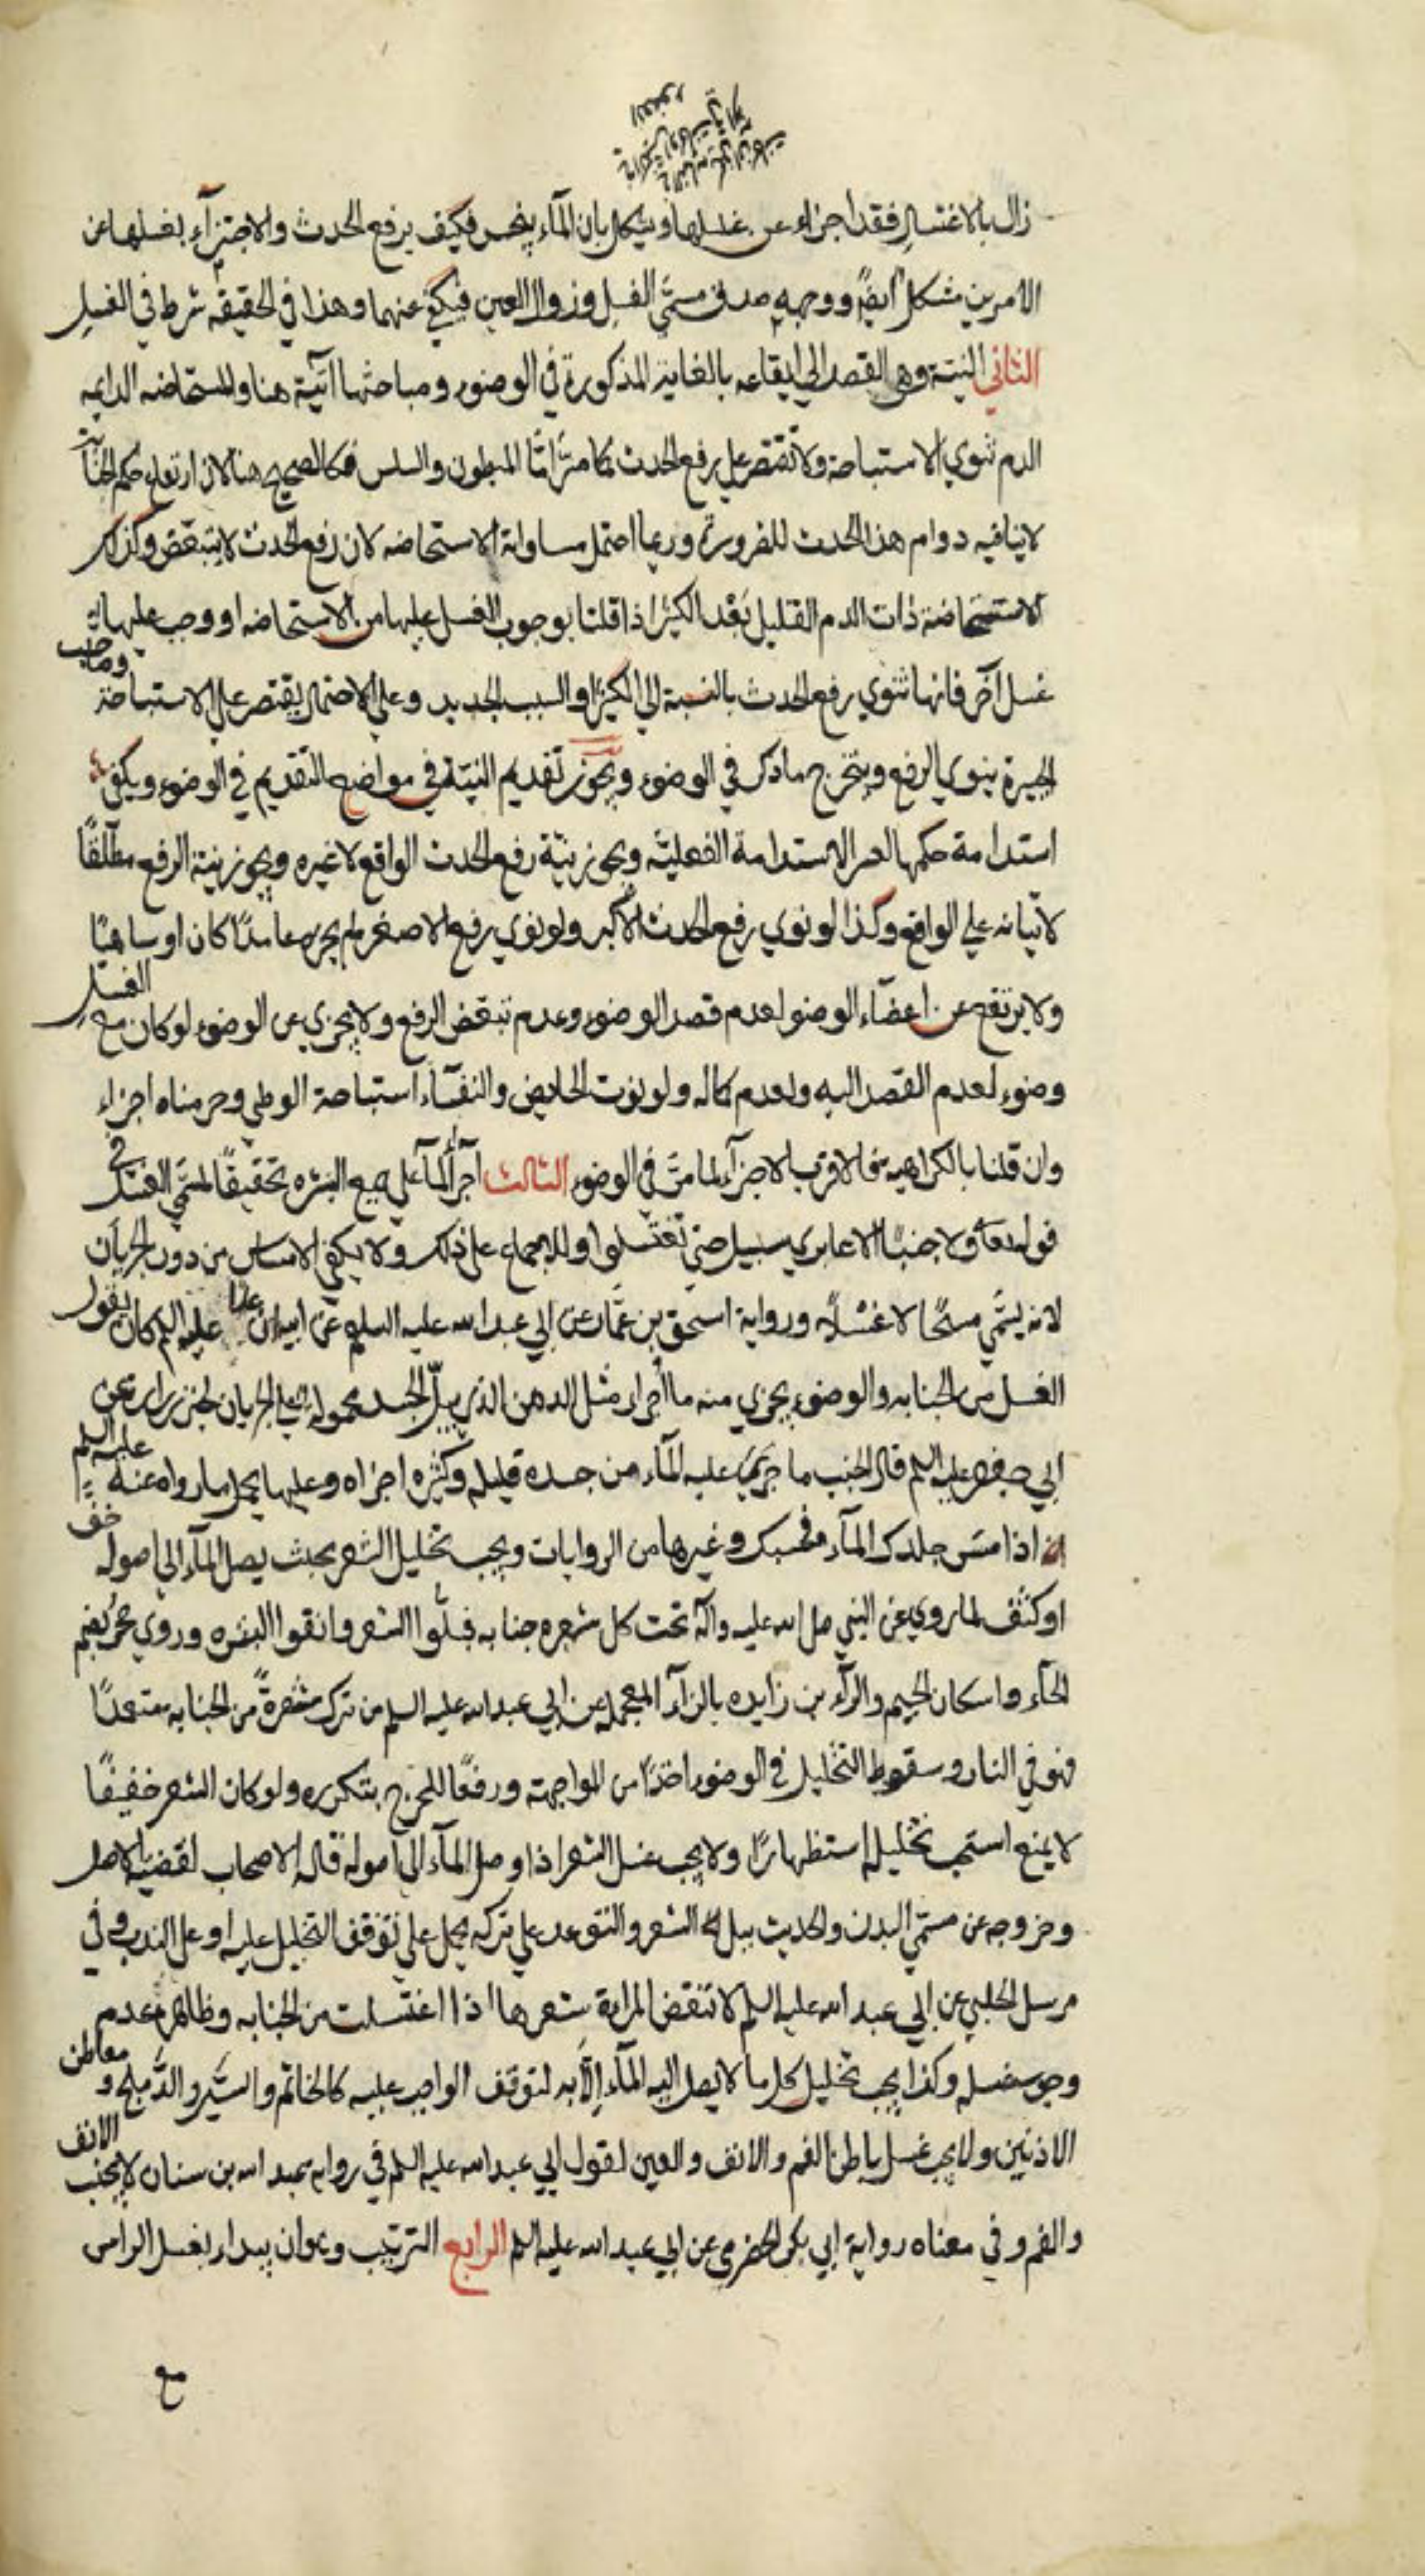 زال بالاغتسال فقد اجزاء عن غسلها ويشكل بان المآء ينجس فكيف يرفع الحدث والاجتزآء بغسلها عن
الامرين مشكل ايضًا ووجهه صدق مسمّي الغسل وزوال العين فيكفي عنهما وهذا في الحقيقه شرط في الغسل
الثاني النيّة وهي القصد الي ايقاعه بالغاية المذكورة في الوضوء ومباحثها اتية هنا والمستحاضه الدايمه
الدم تنوي الاستباحة ولا تقتصر علي رفع الحدث كما مرّ امّا المبطون والسلس فكالصحيح هنا لان ارتفاع حكم الجنابة
لاينافيه دوام هذا الحدث للضرورة وربما احتمل مساواته الاستحاضه لان رفع الحدث لايتبعّض وكذلك
الاستحاضة ذات الدم القليل بَعْد الكثير اذا قلنا بوجوب الغسل عليها من الاستحاضه او وجب عليها
غسل آخر فانها تنوي رفع الحدث بالنسبة الي الكثير او السبب الجديد وعلي الاحتمال يقتصر علي الاستباحة وصاحب
الجبيرة ينوي الرفع ويتخرج ما ذكر في الوضوء ويجوز تقديم النيّة في مواضع التقديم في الوضوء ويكفي
استدامة حكمها لعسر الاستدامة الفعليّه ويجوز نيّة رفع الحدث الواقع لاغيره ويجوز نية الرفع مطلقًا
لاتيانه علي الواقع وكذا لو نوي رفع الحدث الاكبر ولو نوي رفع الاصغر لم يجزه عامدًا كان او ساهيًا
ولا يرتفع عن اعضآء الوضوء لعدم قصد الوضوء وعدم تبعّض الرفع ولا يجزي عن الوضوء لو كان مع الغسل
وضوء لعدم القصد اليه ولعدم كماله ولو نوت الحايض والنفسآء استباحة الوطي وحرمناه اجزاء
وان قلنا بالكراهيه فالاقرب الاجزآء لما مرّ في الوضوء الثالث اجرآء المآء علي جميع البشره تحقيقًا لمسمّي الغسل في
قوله تعالي ولا جنبًا الا عابري سبيل حتي تغتسلوا وللاجماع علي ذلك ولا يكفي الامساس من دون الجريان
لانه يسمّي مسحًا لا غسلًا ورواية اسحق بن عمّار عن ابي عبدالله عليه السلم عن ابيه ان عليًا عليه السلم كان يقول
الغسل من الجنابه والوضوء يجزي منه ما اجزاء مثل الدهن الذي يبلّ الجسد محموله علي الجريان لخبر زراره عن
ابي جعفر عليه السلم قال الجنب ما جري عليه المآء من جسده قليله وكثيره اجزاه وعليها يحمل ما رواه عنه عليه السلم
اذا مسّ جلدك المآء فحسبك وغيرها من الروايات ويجب تخليل الشعر بحيث يصل المآء الي اصوله خف
او كثف لما روي عن النبي صلي الله عليه وآله تحت كل شعره جنابه فبلّوا الشعر وانقوا البشره وروي حجر بضم
الحآء واسكان الجيم والرآء بن زايده بالزآء المعجمه عن ابي عبدالله عليه السلم من ترك شعرةً من الجنابه متعمدًا
فهو في النار وسقوط التخليل في الوضوء اخذًا من المواجهة ورفعًا للحرج بتكرره ولو كان الشعر خفيفًا
لا يمنع استحب تخليله استظهارًا ولا يجب غسل الشعر اذا وصل المآء الي اصوله قاله الاصحاب لقضية الاصل
وخروجه عن مسمّي البدن والحديث ببل الشعر والتوعد علي تركه يحمل علي توقف التخليل عليه او علي الندب وفي
مرسل الحلبي عن ابي عبدالله عليه السلم لا تنقض المراة شعرها اذا اغتسلت من الجنابه وظاهره عدم
وجوب غسله وكذا يجب تخليل كل ما لا يصل اليه المآء الّا به لتوقف الواجب عليه كالخاتم والسَّير والدّملج ومعاطن
الاذنين ولا يجب غسل باطن الفم والانف والعين لقول ابي عبدالله عليه السلم في رواية عبدالله بن سنان لا يجنب الانف
والفم وفي معناه رواية ابي بكر الحضرمي عن ابي عبدالله عليه السلم الرابع الترتيب وهو ان يبداء بغسل الراس
مع